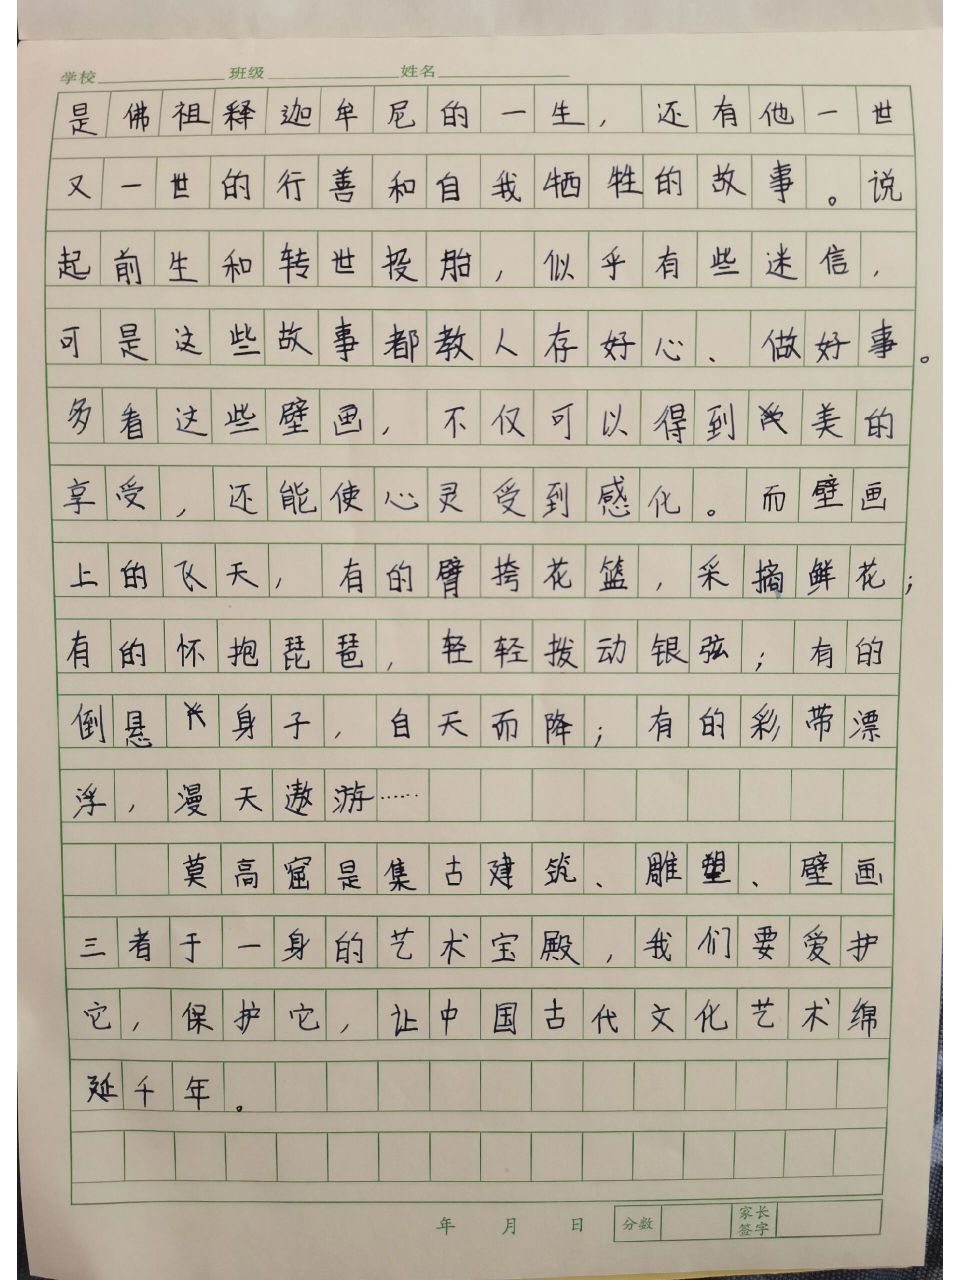 学校 班级 姓名
是佛祖释迦牟尼的一生，还有他一世
又一世的行善和自我牺牲的故事。说
起前生和转世投胎，似乎有些迷信，
可是这些故事都教人存好心、做好事。
多看这些壁画，不仅可以得到美的
享受，还能使心灵受到感化。而壁画
上的飞天，有的臂挎花篮，采摘鲜花；
有的怀抱琵琶，轻轻拨动银弦；有的
倒悬身子，自天而降；有的彩带漂
浮，漫天遨游……
莫高窟是集古建筑、雕塑、壁画
三者于一身的艺术宝殿，我们要爱护
它，保护它，让中国古代文化艺术绵
延千年。
年 月 日 分数 家长签字